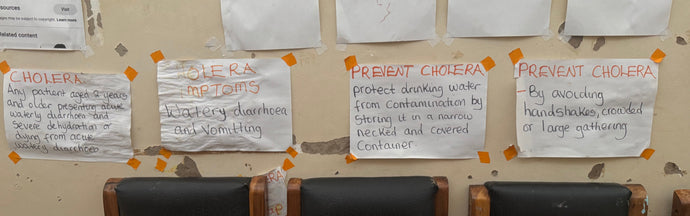 sources
Visit
Images may be subject to copyright. Learn more
Related content
CHOLERA
Any patient aged 2 years
and older presenting acute
waterly diarrhoea and
severe dehydration or
dying from acue
watery diarrhoea
OLERA
MPTOMS
Watery diarrhoea
and Vomitting
PREVENT CHOLERA
protect drinking water
from contamination by
storing it in a narrow
necked and covered
Container.
PREVENT CHOLERA
- By avoiding
handshakes, crowded
or large gathering
ERA